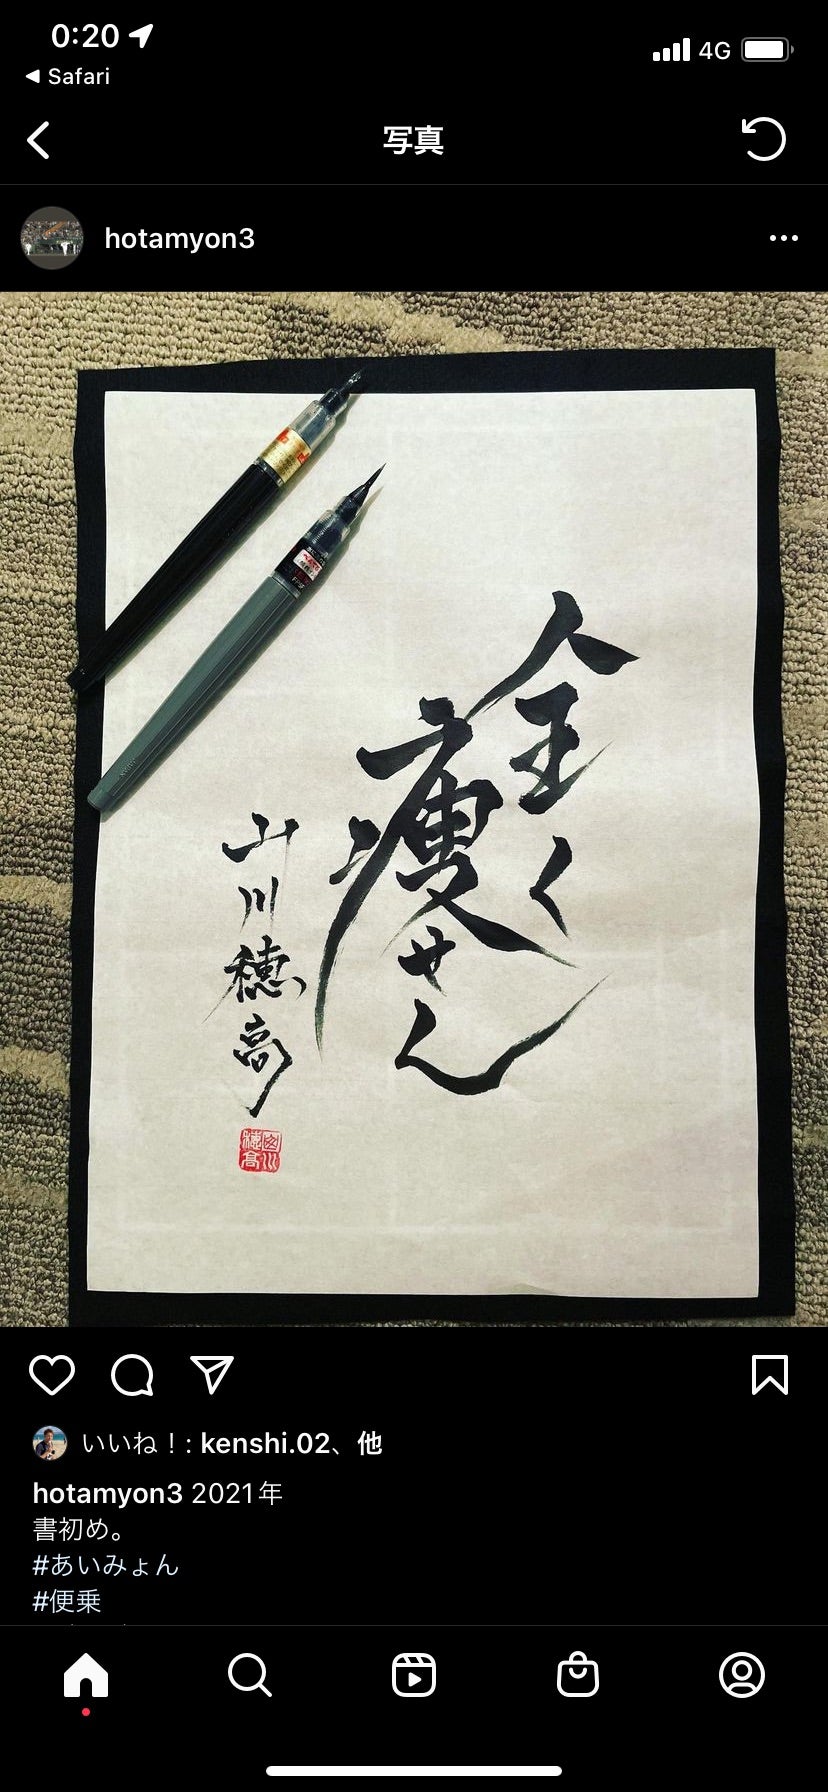 0:20
4G
Safari
写真
hotamyon3
全く
痩せん
山川穂高
山川
穂高
いいね！: kenshi.02、他
hotamyon3 2021年
書初め。
#あいみょん
#便乗